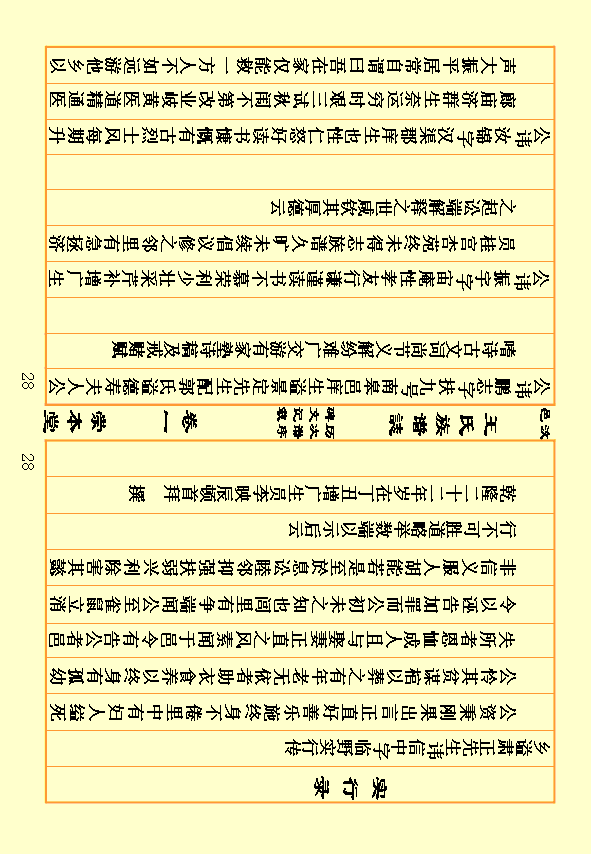 实行录
乡谥肃正先生讳信中字临野实行传
公资秉刚果出言正直好善乐施终身不倦里中有妇人缢死
公怜其贫谋以棺葬之有年老无依者助衣食养以终身有孤幼
失所者恩恤成人且与娶妻正直之风素闻于邑令有告公者邑
令以诬告加罪而公初未之知也闾里有争端闻公至雀鼠立消
非信义服人胡能若是至於息讼睦邻抑强扶弱兴利除害其懿
行不可胜道略举数端以示后云
乾隆二十二年岁在丁丑增广生员李映辰顿首拜 撰
28
汶邑
王氏族譜誌
历次谱序
碑文记载
卷一
崇本堂
28
公讳鹏志字扶九号南皋邑庠生谥景定先生配郭氏谥德寿夫人公
嗜诗古文词尚节义解纷难广交游有家塾诗稿及戒赌赋
公讳振宇字宙庵性孝友行谦谨读书不慕荣利少壮采芹补增广生
员桂宫杏苑终未得志族谱久旷未续倡议修之邻里有急拯济
之起讼端解释之世咸钦其厚德云
公讳汝锦字汉渠郡庠生也性仁恕好读书慷慨有古烈士风每期升
廊庙济群生奈运穷时艰三试秋闱不第改业岐黄医道精通医
声大振平居常自谓曰吾在家仅能救一方人不如远游他乡以